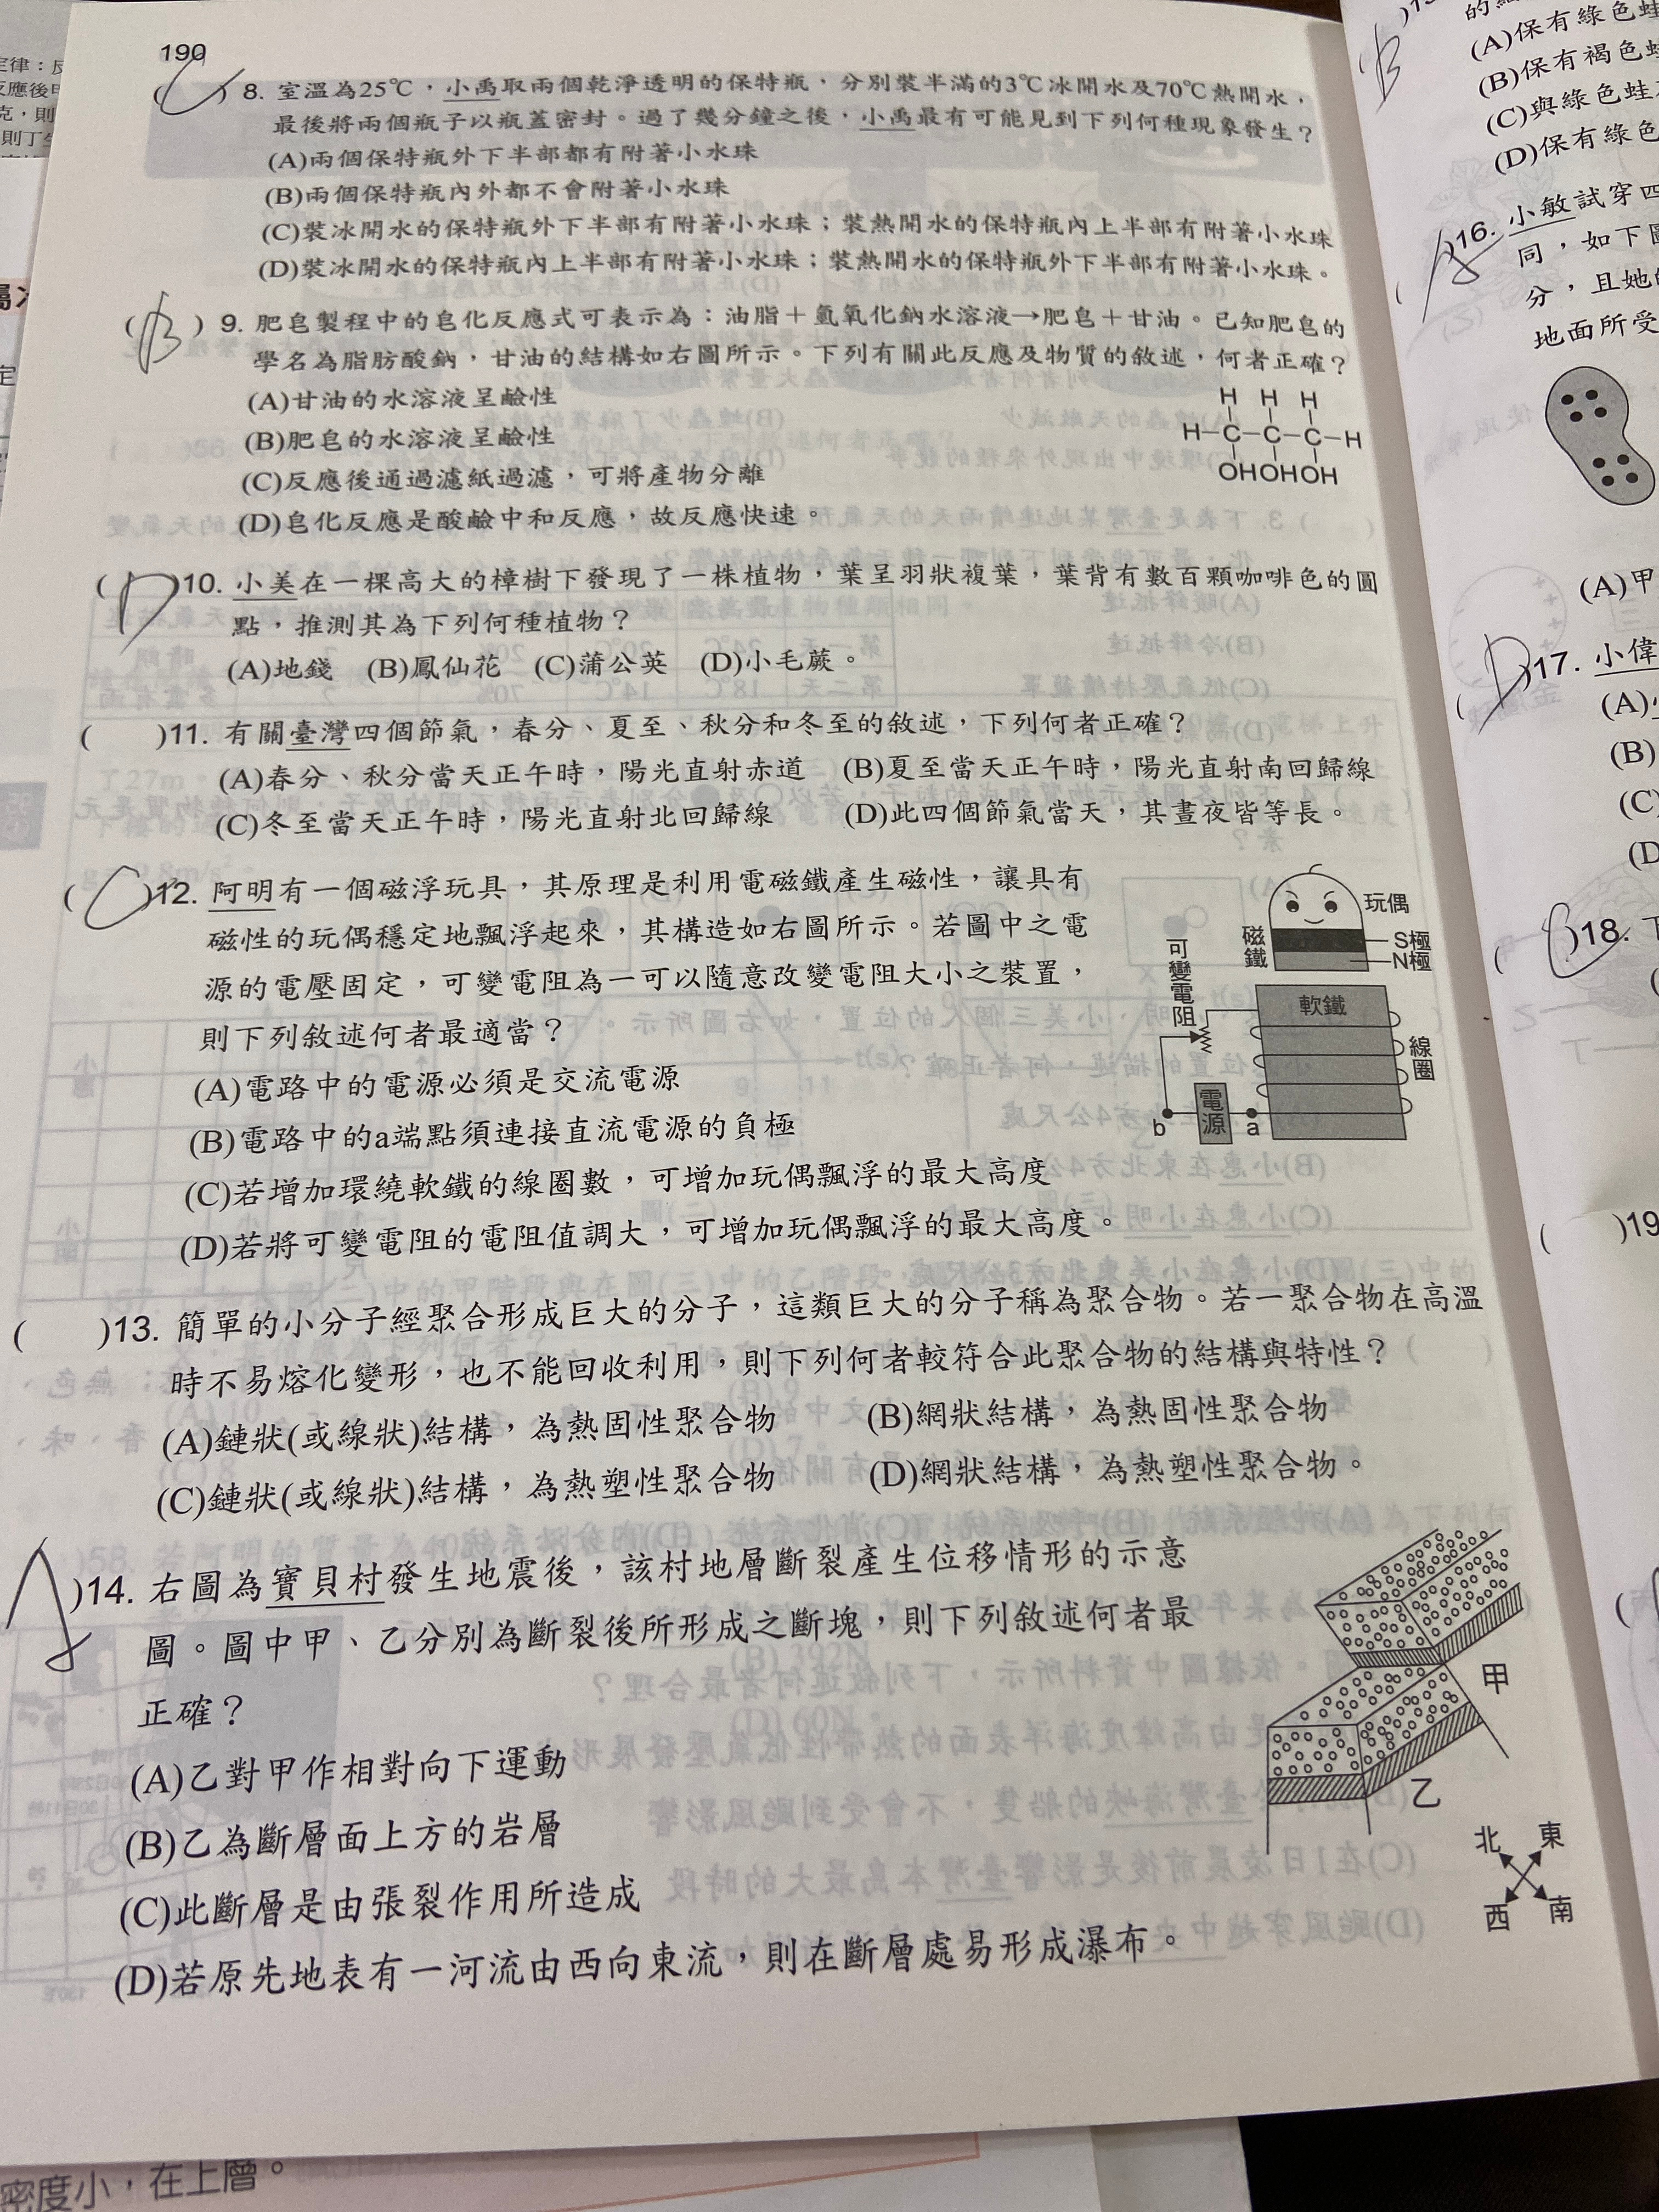 190
(C) 8. 室溫為25℃，小禹取兩個乾淨透明的保特瓶，分別裝半滿的3℃冰開水及70℃熱開水，
最後將兩個瓶子以瓶蓋密封。過了幾分鐘之後，小禹最有可能見到下列何種現象發生？
(A)兩個保特瓶外下半部都有附著小水珠
(B)兩個保特瓶內外都不會附著小水珠
(C)裝冰開水的保特瓶外下半部有附著小水珠；裝熱開水的保特瓶內上半部有附著小水珠
(D)裝冰開水的保特瓶內上半部有附著小水珠；裝熱開水的保特瓶外下半部有附著小水珠。
(B) 9. 肥皂製程中的皂化反應式可表示為：油脂＋氫氧化鈉水溶液→肥皂＋甘油。已知肥皂的
學名為脂肪酸鈉，甘油的結構如右圖所示。下列有關此反應及物質的敘述，何者正確？
(A)甘油的水溶液呈鹼性
(B)肥皂的水溶液呈鹼性
(C)反應後通過濾紙過濾，可將產物分離
(D)皂化反應是酸鹼中和反應，故反應快速。
H H H
H-C-C-C-H
OHOHOH
(D)10. 小美在一棵高大的樟樹下發現了一株植物，葉呈羽狀複葉，葉背有數百顆咖啡色的圓
點，推測其為下列何種植物？
(A)地錢 (B)鳳仙花 (C)蒲公英 (D)小毛蕨。
( )11. 有關臺灣四個節氣，春分、夏至、秋分和冬至的敘述，下列何者正確？
(A)春分、秋分當天正午時，陽光直射赤道 (B)夏至當天正午時，陽光直射南回歸線
(C)冬至當天正午時，陽光直射北回歸線 (D)此四個節氣當天，其晝夜皆等長。
(C)12. 阿明有一個磁浮玩具，其原理是利用電磁鐵產生磁性，讓具有
磁性的玩偶穩定地飄浮起來，其構造如右圖所示。若圖中之電
源的電壓固定，可變電阻為一可以隨意改變電阻大小之裝置，
則下列敘述何者最適當？
(A)電路中的電源必須是交流電源
(B)電路中的a端點須連接直流電源的負極
(C)若增加環繞軟鐵的線圈數，可增加玩偶飄浮的最大高度
(D)若將可變電阻的電阻值調大，可增加玩偶飄浮的最大高度。
玩偶
磁鐵
S極
N極
可變電阻
軟鐵
線圈
電源
b
a
( )13. 簡單的小分子經聚合形成巨大的分子，這類巨大的分子稱為聚合物。若一聚合物在高溫
時不易熔化變形，也不能回收利用，則下列何者較符合此聚合物的結構與特性？
(A)鏈狀(或線狀)結構，為熱固性聚合物 (B)網狀結構，為熱固性聚合物
(C)鏈狀(或線狀)結構，為熱塑性聚合物 (D)網狀結構，為熱塑性聚合物。
A )14. 右圖為寶貝村發生地震後，該村地層斷裂產生位移情形的示意
圖。圖中甲、乙分別為斷裂後所形成之斷塊，則下列敘述何者最
正確？
(A)乙對甲作相對向下運動
(B)乙為斷層面上方的岩層
(C)此斷層是由張裂作用所造成
(D)若原先地表有一河流由西向東流，則在斷層處易形成瀑布。
甲
乙
北 東
西 南
密度小，在上層。
(A)保有綠色蛙
(B)保有褐色蛙
(C)與綠色蛙
(D)保有綠色
B
A )16. 小敏試穿四
同，如下圖
分，且她的
地面所受
(A)甲
(D)17. 小偉
(A)
(B)
(C)
(D
)18.
( )19